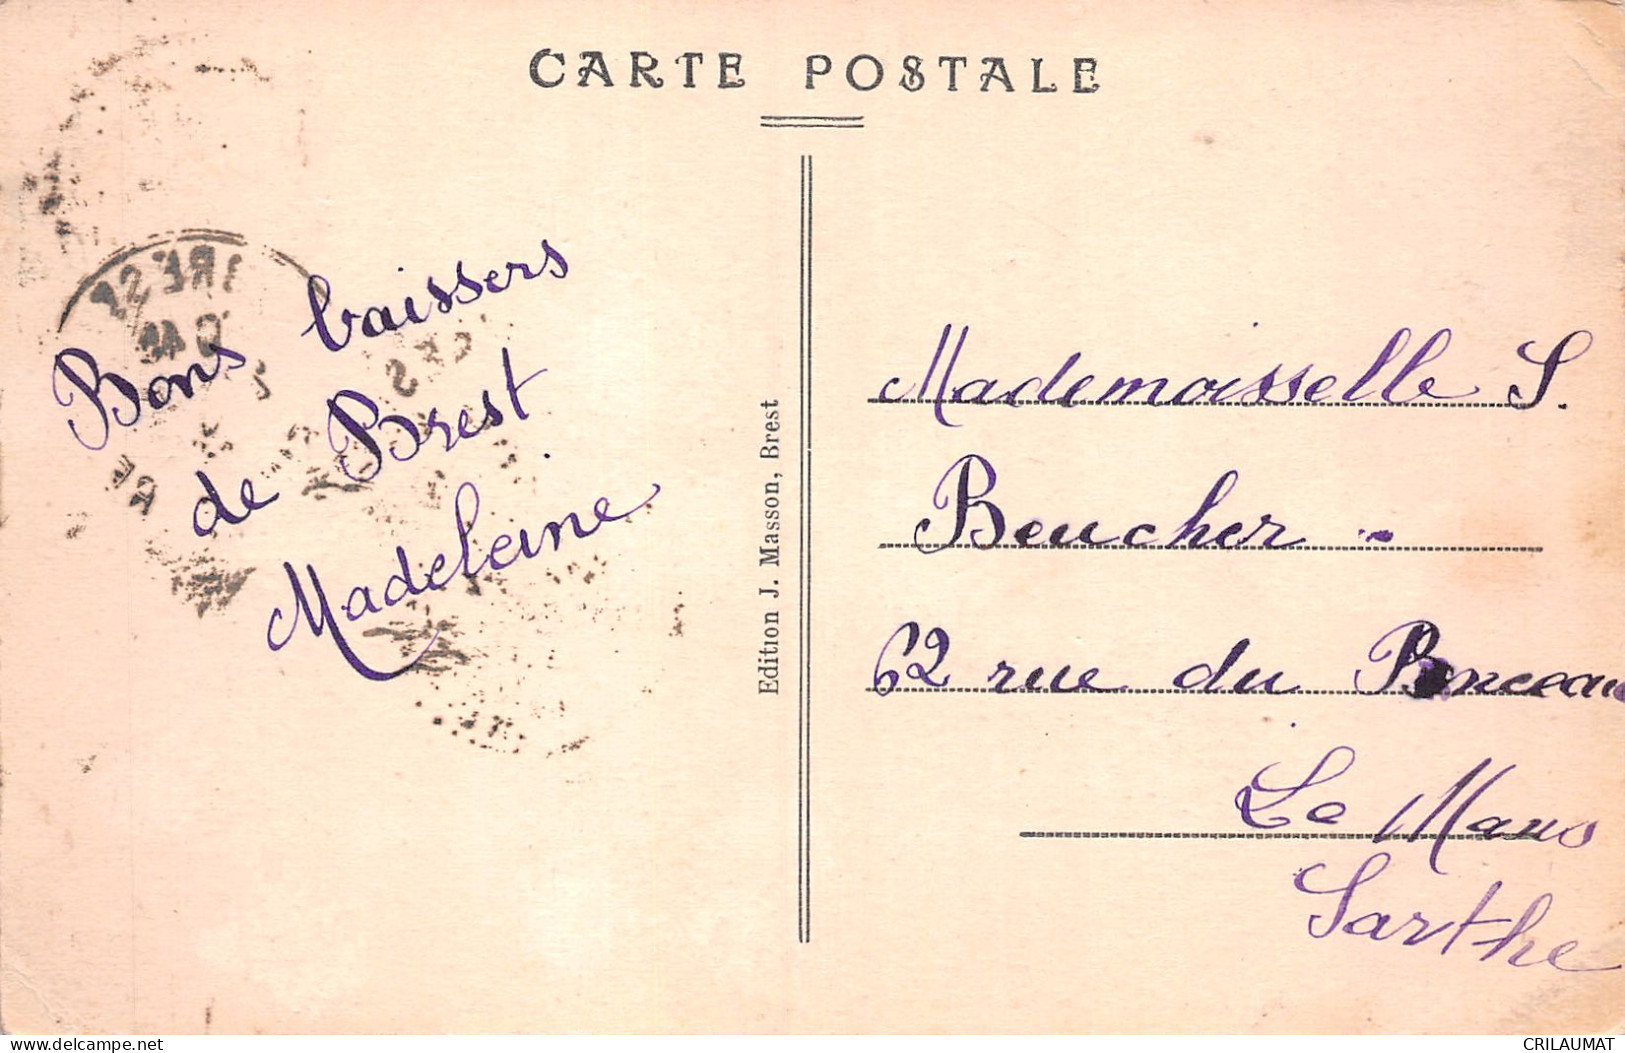 CARTE POSTALE
Bons baissers
de Brest
Madeleine
Edition J. Masson, Brest
Mademoisselle S.
Beucher -
62 rue du Ponceau
Le Mans
Sarthe
www.delcampe.net
CRILAUMAT